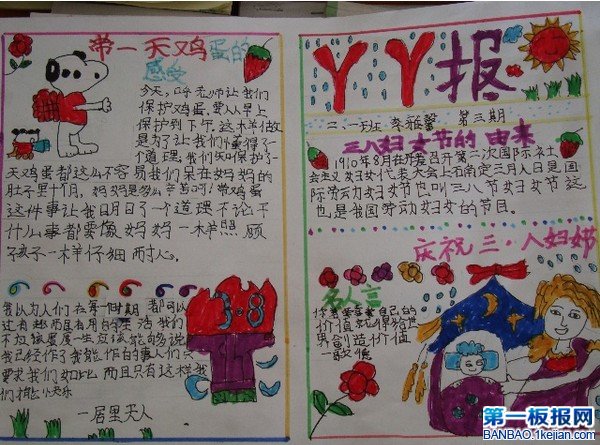 带一天鸡蛋的
感受
今天，呼老师让我们
保护鸡蛋，要从早上
保护到下午，这木羊做
是为了让我们懂得了一
个道理，我们知保护一
天鸡蛋都这么不容易我们呆在妈妈的
肚子里十个月，妈妈是多么辛苦呵!带鸡蛋
这件事让我明白了一个道理不论干
什么事都要像妈妈一样照顾
孩子一样仔细而心。
我以为人们在每一个时期都可以
过有趣而且有用的生活我们
不应该虚度一生应该能够说
我已经作了我能作的事人们只
要求我们如此而且只有这样我
们才能小欢乐
一居里夫人
3·8
丫丫报
二、一班 李雅馨 第三期
三八妇女节的由来
1910年8月在丹麦召开第二次国际社
会主义妇女代表大会上右南定三月八日是国
际劳动妇女节也叫三八节妇女节这
也是我国劳动妇女的节目。
庆祝三·八妇女节
名人言
自己的
价值
创造价值
一歌德
第一板报网
BANBAO.1kejian.com